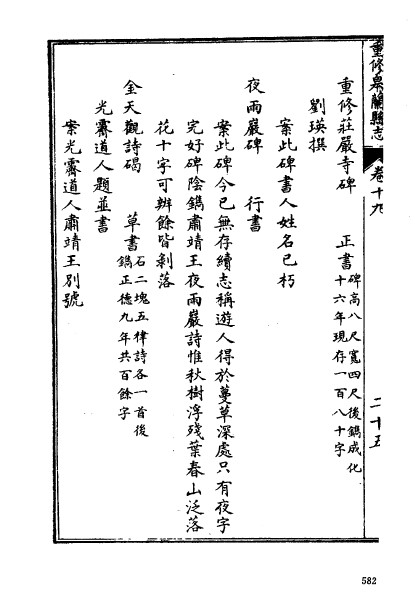 重修皋蘭縣志
卷十九
二十五
重修莊嚴寺碑　正書
碑高八尺寬四尺後鐫成化
十六年現存一百八十字
劉瑛撰
案此碑書人姓名已朽
夜雨巖碑　行書
案此碑今已無存續志稱遊人得於蔓草深處只有夜字
完好碑陰鐫肅靖王夜雨巖詩惟秋樹浮殘葉春山泛落
花十字可辨餘皆剝落
金天觀詩碣　草書
石二塊五律詩各一首後
鐫正德九年共百餘字
光霽道人題並書
案光霽道人肅靖王別號
582